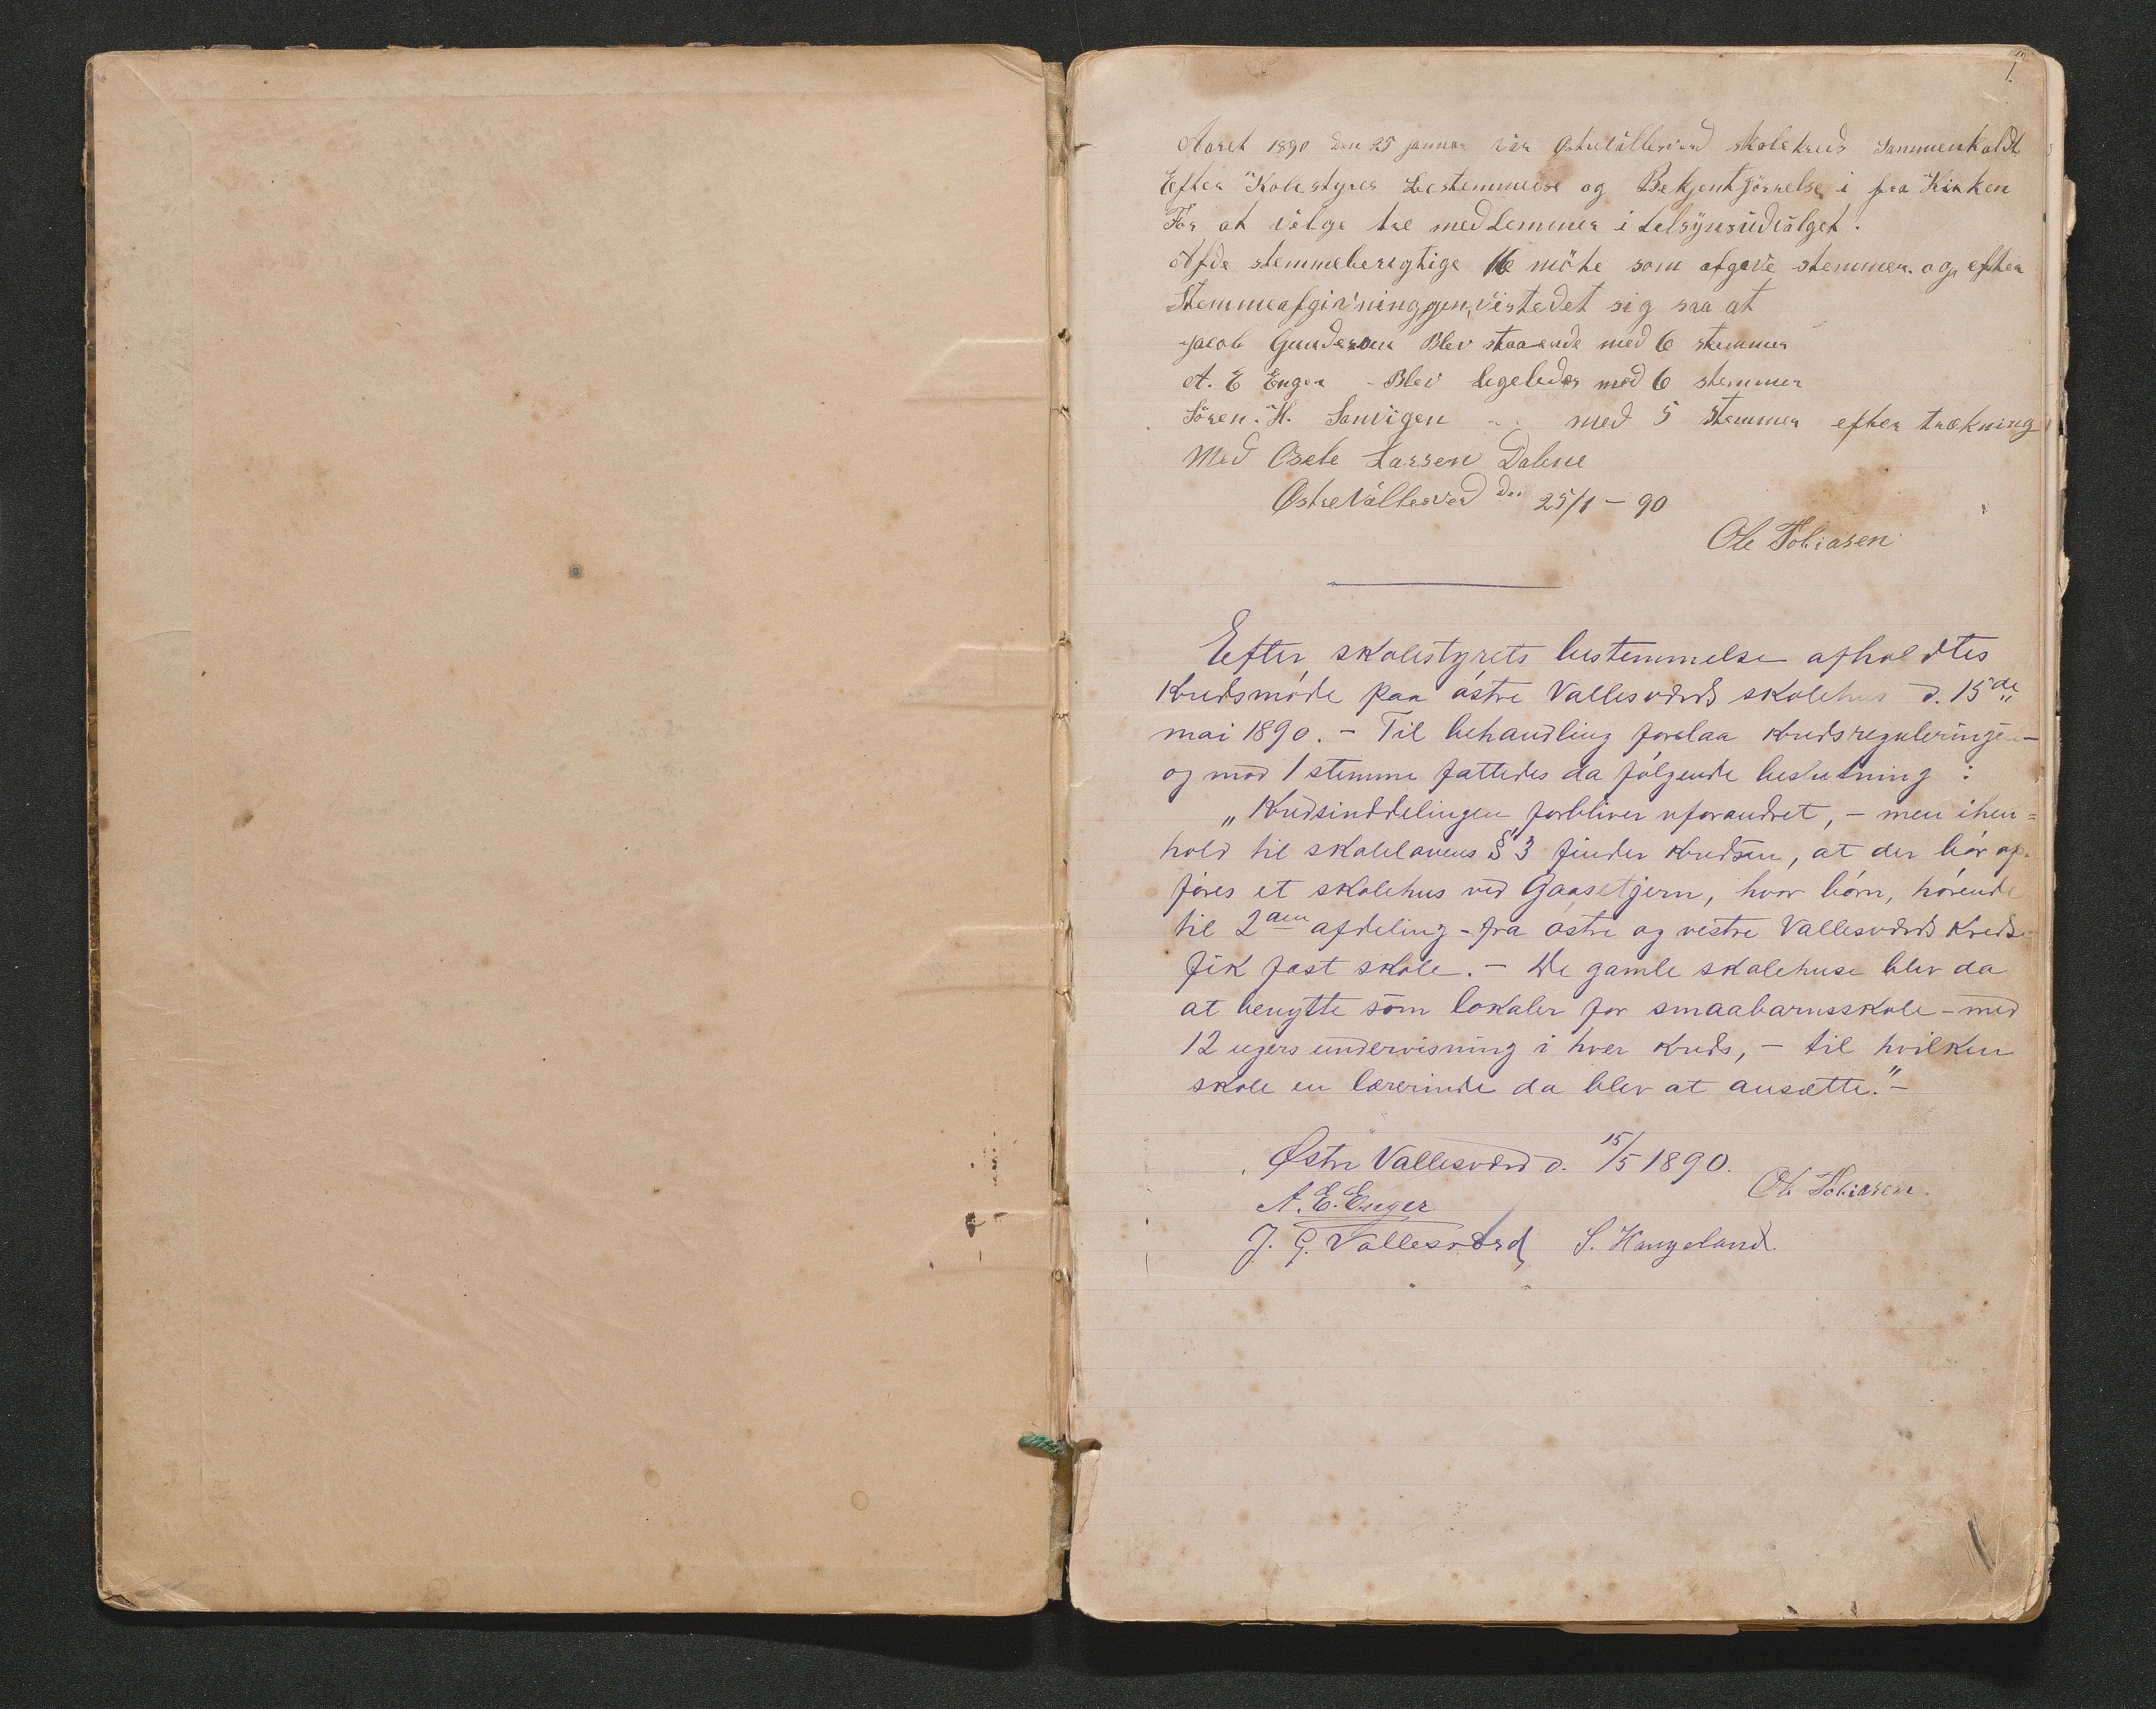 1.
Aaret 1890 den 25 januar var Østrevallesverd skolekreds Sammenkaldt
Efter Skolestyres bestemmelse og Bekjentgjörrelse i fra Kirken
For at välge tre medlemmer i telsÿnsüdvälget.
Afde stemmeberegtige 16 möte som afgave stemmer. og efter
Stemmeafgivninggen, vistedet sig saa at
Jacob Gunderson Blev staaende med 6 stemmer
A. E Enger - Blev legeledes med 6 stemmer
Sören. H. Sanvigen - - med 5 stemmer efter trækning
Med Osele Larsen Dalene
Østre Vallesverd den 25/1 - 90
Ole Tobiasen
Efter skolestyrets bestemmelse afholdtes
Kredsmøde paa østre Vallesværds skolehus d. 15de
mai 1890. - Til behandling forelaa kredsreguleringen -
og mod 1 stemme fattedes da følgende beslutning :
„Kredsinddelingen forbliver uforandret, - men ihen=
hold til skolelovens § 3 finder kredsen, at der bør op-
føres et skolehus ved Gaasetjern, hvor børn, hørende
til 2den afdeling - fra østre og vestre Vallesværds Kredse
fik fast skole. - De gamle skolehuse blev da
at benytte som lokaler for smaabarnsskole - med
12 ugers undervisning i hver kreds, - til hvilken
skole en lærerinde da blev at ansætte." -
Østre Vallesværd d. 15/5 1890.
Ole Tobiasen.
A. E. Enger
J. G. Vallesværd, S. Haugeland.